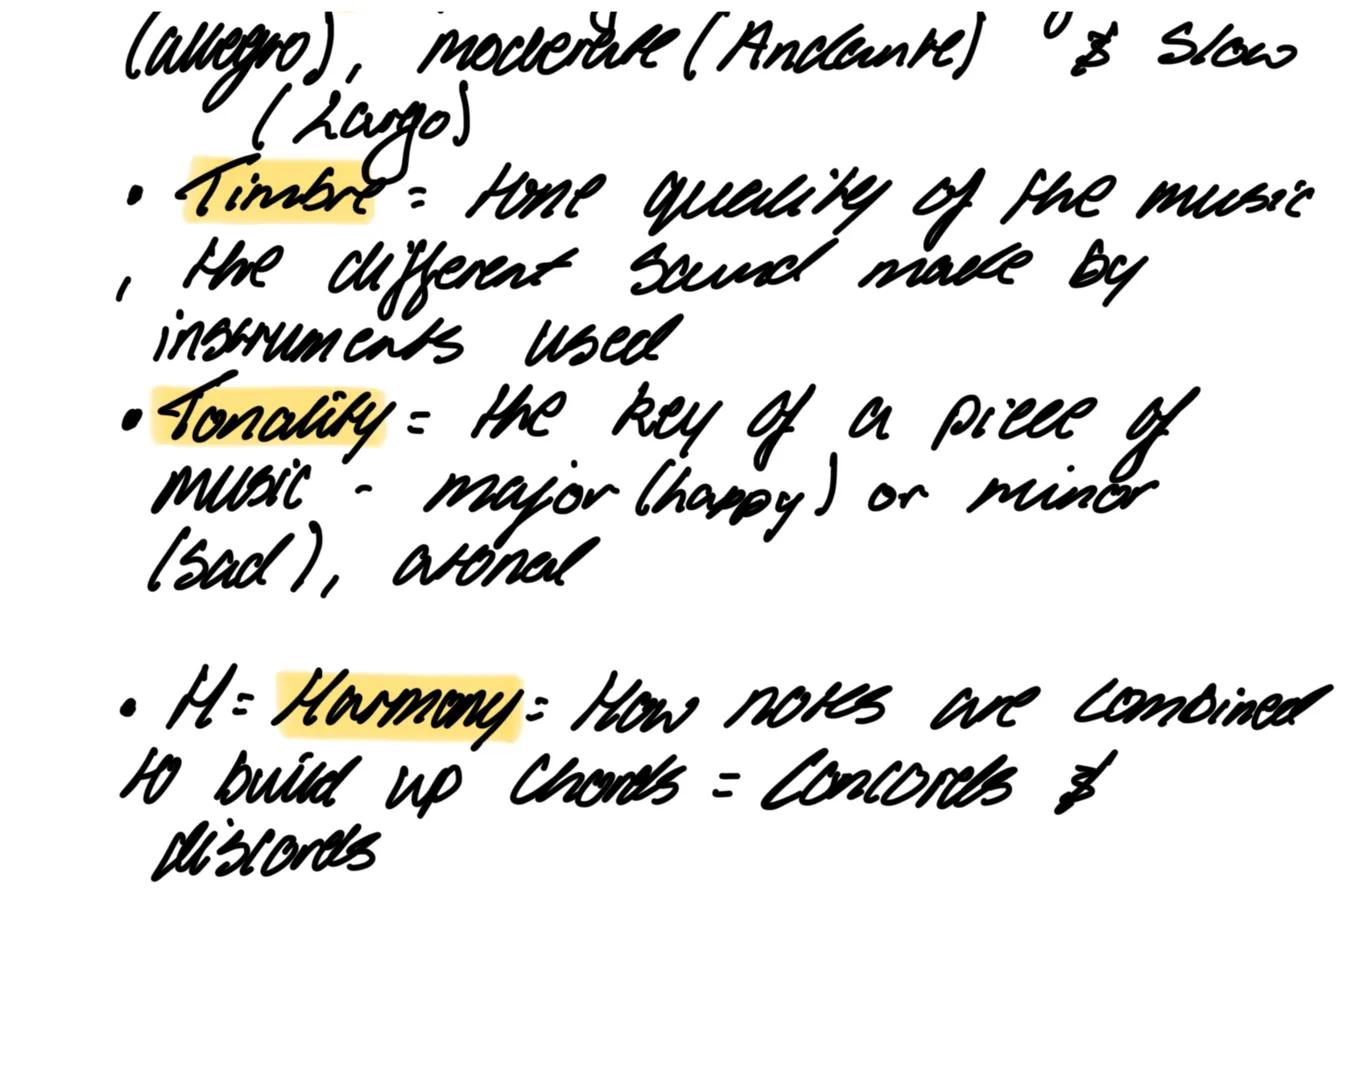 (allegro), moderate (Andante) & Slow
(Largo)
• Timbre = tone quality of the music
, the different sound made by
instruments used
• Tonality = the key of a piece of
music - major (happy) or minor
(sad), atonal
• H = Harmony = How notes are combined
to build up Chords = Concords &
discords